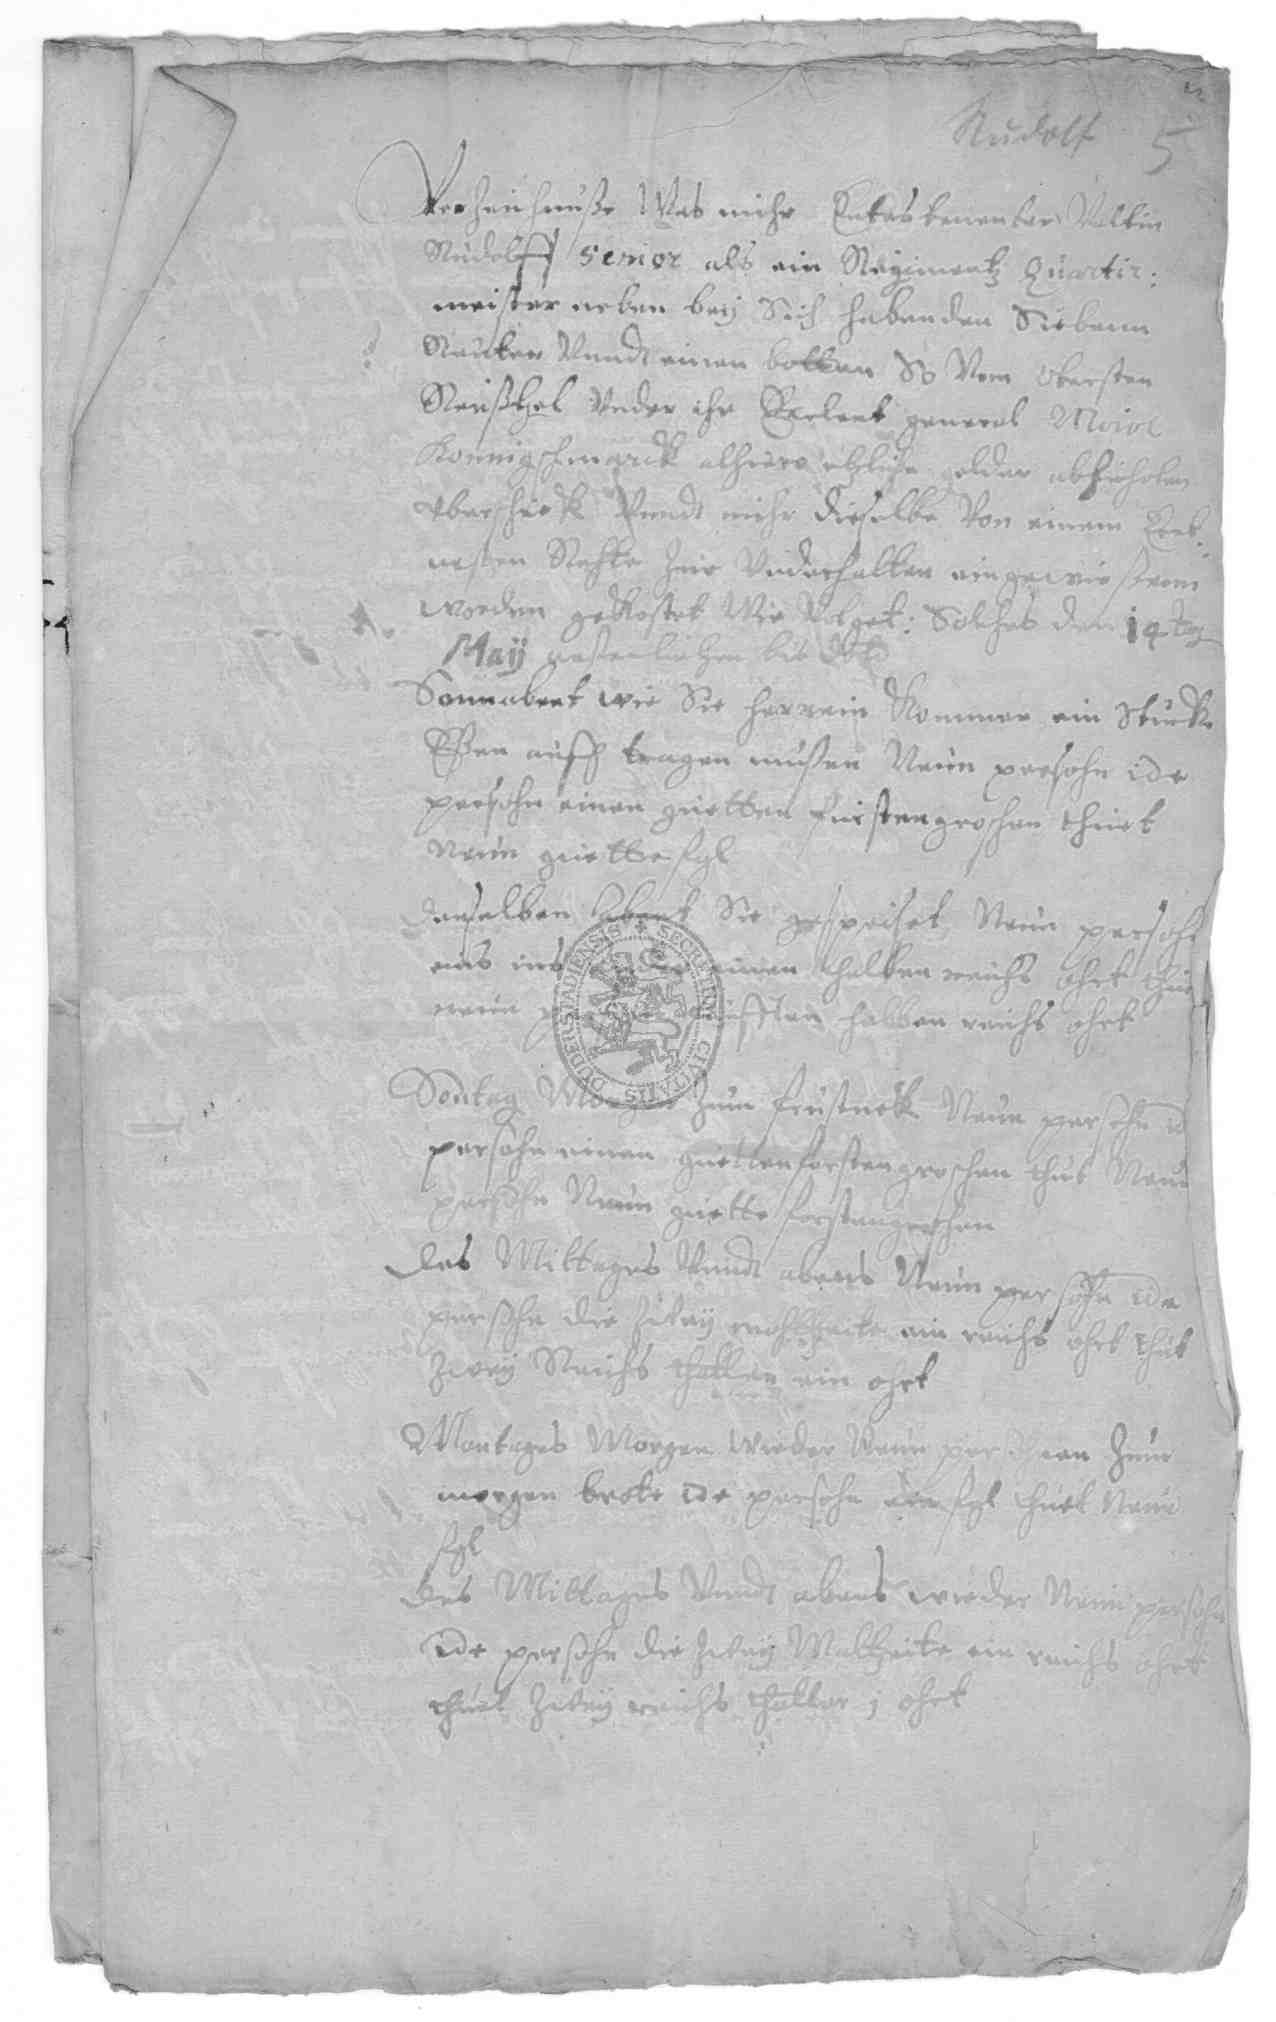 Rudolf 5
Verzeichnuße Was mihr Endes benenter Valtin
Rudolff Senior als ein Regiments Quartir:
meister neben beij Sich habenden Siebenn
Reuter Vundt einen botten So Vom Obersten
Reuschel Vnder ihr general Moior
Konnigschmarck alhiero etzliche gelder abhuholen
vberschickt Vundt mihr dieselbe Von einem
Rahte zue Vnderhalten eingewiesenn
worden gekostet Wie Volget: Solches den 14 tag
Maij
Sonnabent wie Sie herrein Kommen ein Stucke
Eßen auff tragen mußen Neun persohn ide
persohn einen guetten furstengroschen thuet
Neun guette sgl
denselben Abent Sie gespeiset Neun persohn
eins ins ander einen halben reichs ohrt thut
neun halben reichs ohrt
Sontag Morgen Zum frustuck Neun persohn id
persohn einen guetten forstengroschen thut Neun
persohn Neun guette forstengroschen
des Mittages Vundt abens Neun persohn ide
persohn die zweij mahlzeite ein reichs ohrt thut
Zweij Reichs thaller ein ohrt
Montages Morgen Wieder Neun persohnen Zum
morgen brote ide persohn ein sgl thuet Neun
sgl
des Mittages Vundt abens wieder Neun persohn
ide persohn die zweij Maltzeite ein reichs ohrt
thuet Zweij reichs thaller j ohrt
SECRETUM CIVITATIS DUDERSTADIENSIS